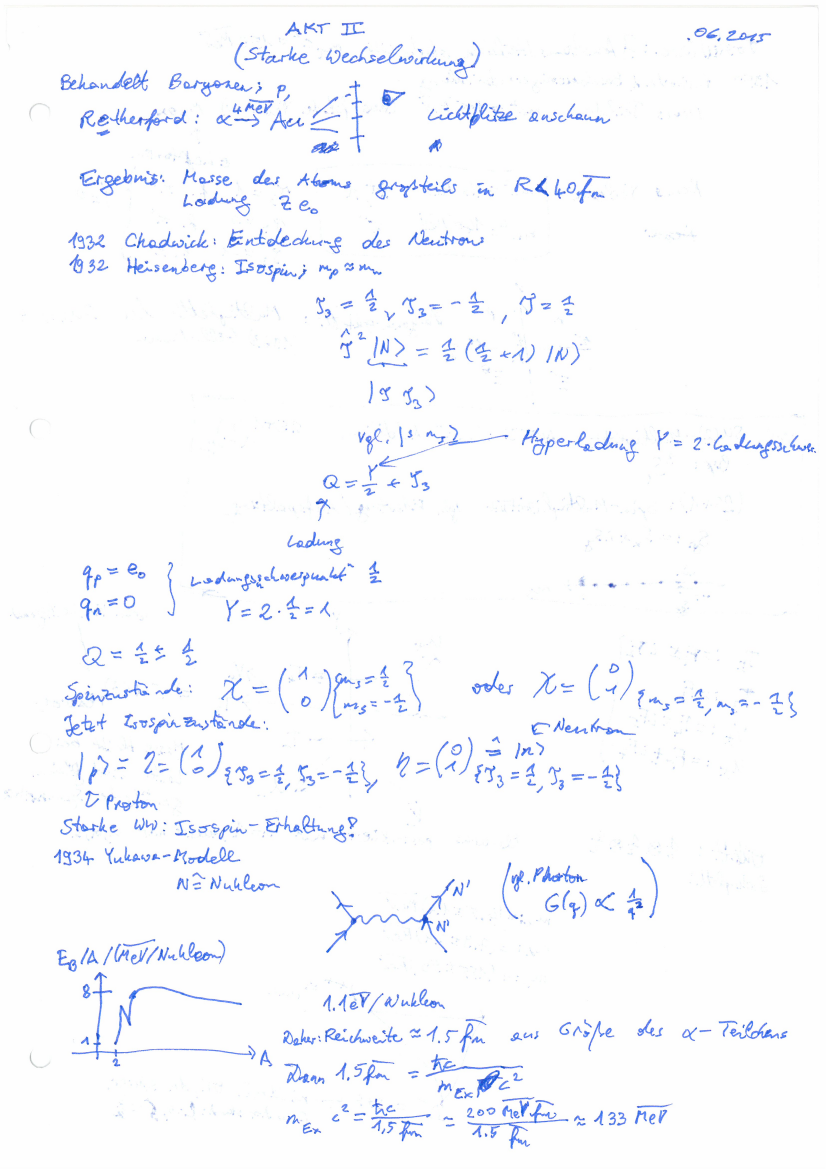 AKT II
.06.2015
(Starke Wechselwirkung)
Behandelt Baryonen; p,
Retherford: α 4MeV→ Au
Lichtblitze anschaun
Ergebnis: Masse des Atoms großteils in R<40fm
Ladung Z e₀
1932 Chadwick: Entdeckung des Neutrons
1932 Heisenberg: Isospin; mₚ≈mₙ
T₃ = 1/2, T₃ = -1/2, T = 1/2
T̂² |N> = 1/2 (1/2 +1) |N>
|T T₃>
vgl. |s mₛ>
Hyperladung Y = 2·Ladungsschwer.
Q = Y/2 + T₃
↑
Ladung
qₚ = e₀
qₙ = 0
} Ladungsschwerpunkt 1/2
Y = 2·1/2 = 1
Q = 1/2 ± 1/2
Spinzustände: χ = (1 0) {mₛ = 1/2 mₛ = -1/2} oder χ = (0 1) {mₛ = 1/2, mₛ = -1/2}
Jetzt Isospinzustände:
Neutron
|p> = η = (1 0) {T₃ = 1/2, T₃ = -1/2}, η = (0 1) ≙ |n> {T₃ = 1/2, T₃ = -1/2}
Proton
Starke WW: Isospin-Erhaltung!
1934 Yukawa-Modell
N ≙ Nukleon
N'
N'
(vgl. Photon
G(q) ∝ 1/q²)
E_B/A/(MeV/Nukleon)
8
1
2
A
1.1eV/Nukleon
Daher: Reichweite ≈ 1.5 fm aus Größe des α-Teilchens
Dann 1.5fm = ħc / m_Ex c²
m_Ex c² = ħc / 1,5 fm ≈ 200 MeV fm / 1.5 fm ≈ 133 MeV